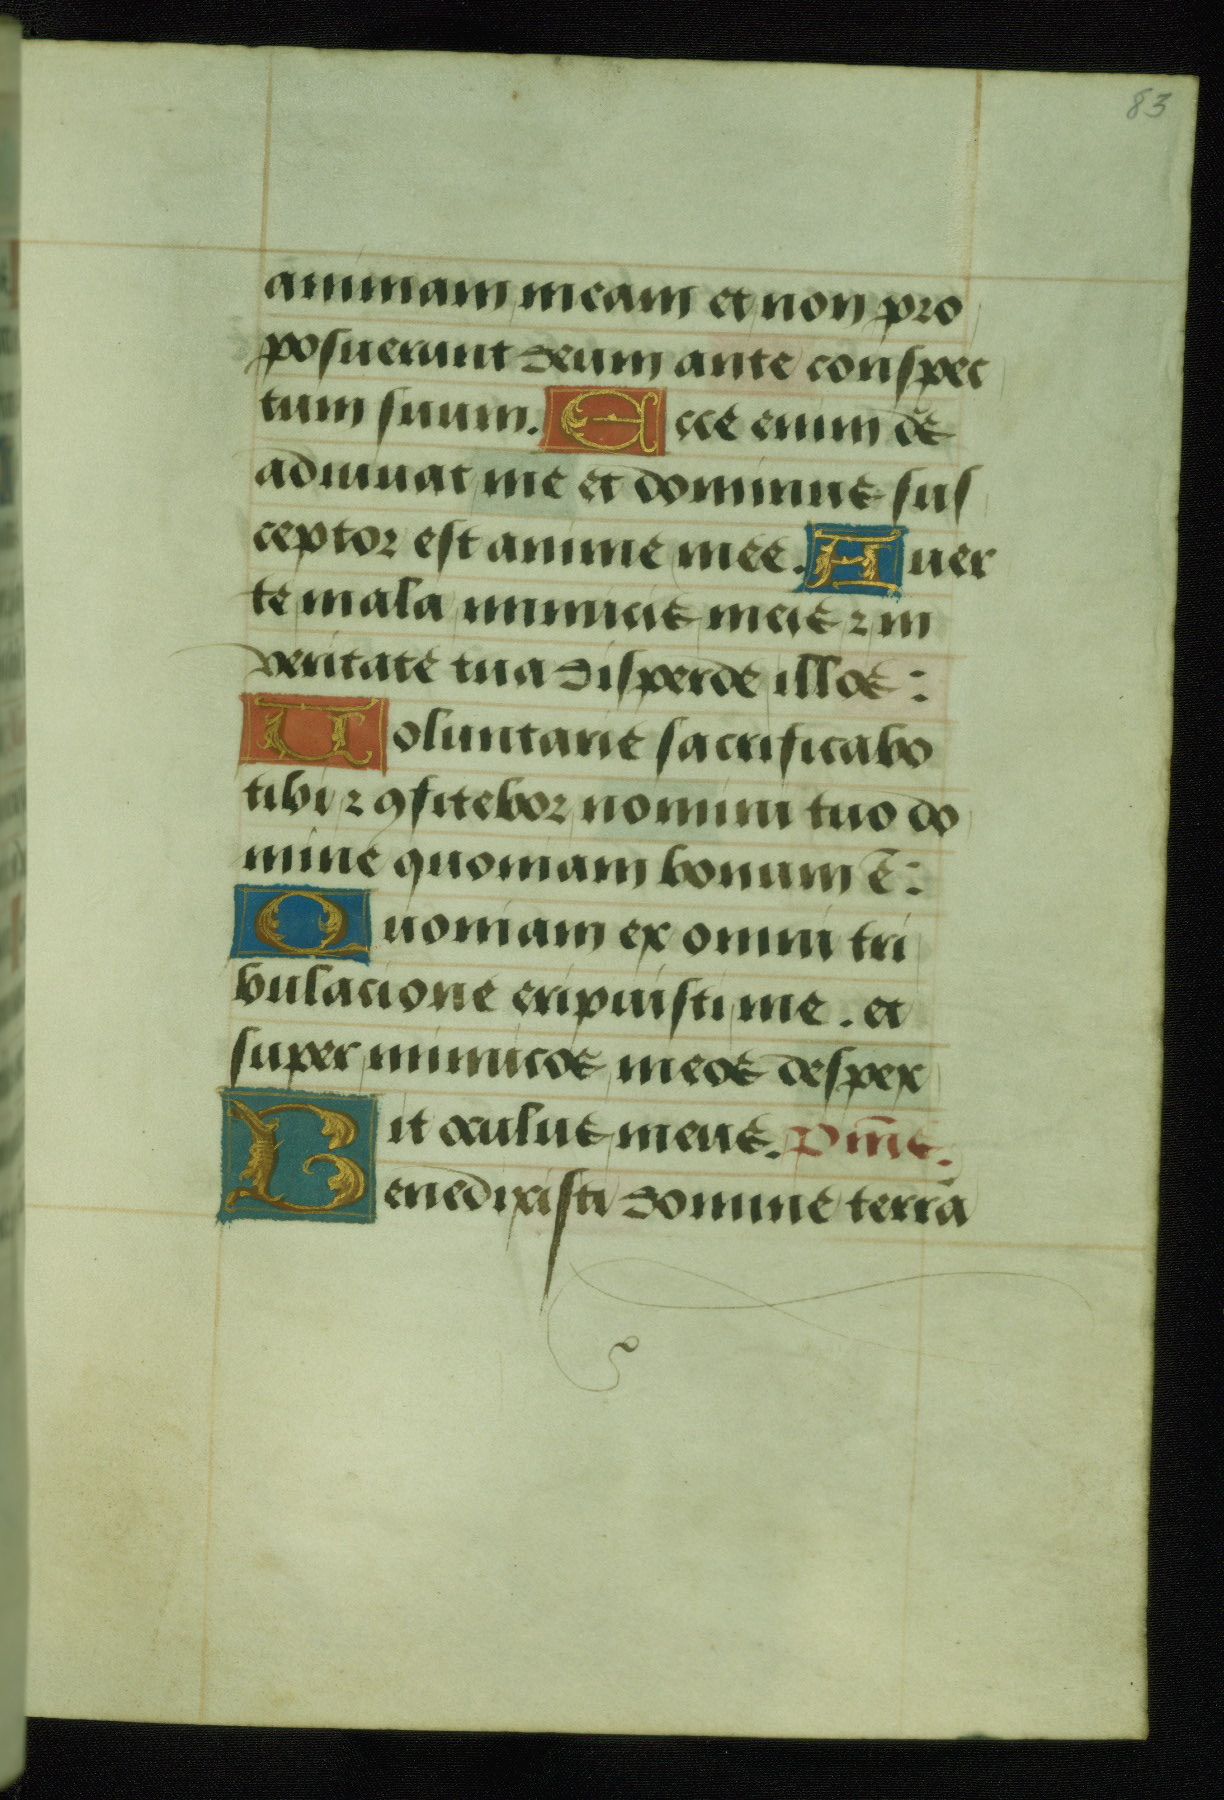 83
animam meam et non pro
posuerunt deum ante conspec
tum suum. Ecce enim ds̄
adiuuat me et dominus sus
ceptor est anime mee. Auer
te mala inimicis meis ⁊ in
veritate tua disperde illos:
Uoluntarie sacrificabo
tibi ⁊ ꝯfitebor nomini tuo do
mine quoniam bonum ē:
Quoniam ex omni tri
bulacione eripuisti me. et
super inimicos meos despex
it oculus meus. p̄mͥs.
Benedixisti domine terrā